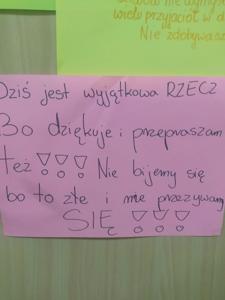 wielu przyjaciół w d
Nie zdobywasz
Dziś jest wyjątkowa RZECZ
Bo dziękuje i przepraszam
też!!! Nie bijemy się
bo to złe i nie przezywamy
SIĘ !!!